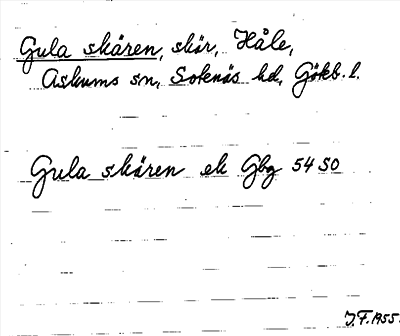 Gula skären, skär, Håle,
Askums sn, Sotenäs hd, Götkb. l.
Gula skären ek Gbg 54 SO
J.F. 1955.